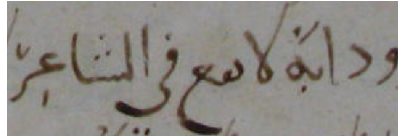 ودابة لا في الشاعر